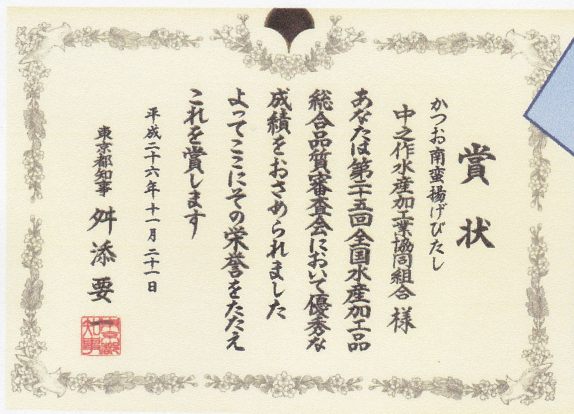 賞状
かつお南蛮揚げびたし
中之作水産加工業協同組合 様
あなたは第二十五回全国水産加工品
総合品質審査会において優秀な
成績をおさめられました
よってここにその栄誉をたたえ
これを賞します
平成二十六年十一月二十一日
東京都知事 舛添要一